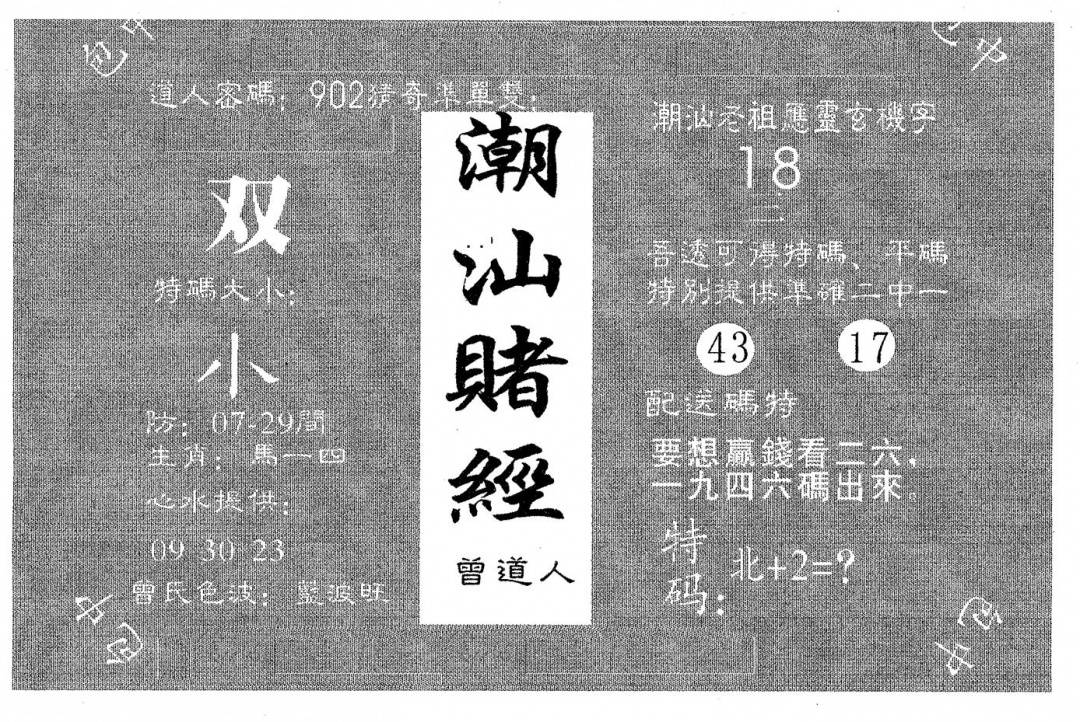 包中
包中
道人密碼：902猜奇準單雙：
双
特碼大小：
小
防：07-29間
生肖：馬一四
心水提供：
09 30 23
曾氏色波：藍波旺
潮
汕
賭
經
曾道人
潮汕老祖應靈玄機字
18
二
吾透可得特碼、平碼
特別提供準確二中一
43 17
配送碼特
要想贏錢看二六，
一九四六碼出來。
特码：
北+2=?
包中
包中